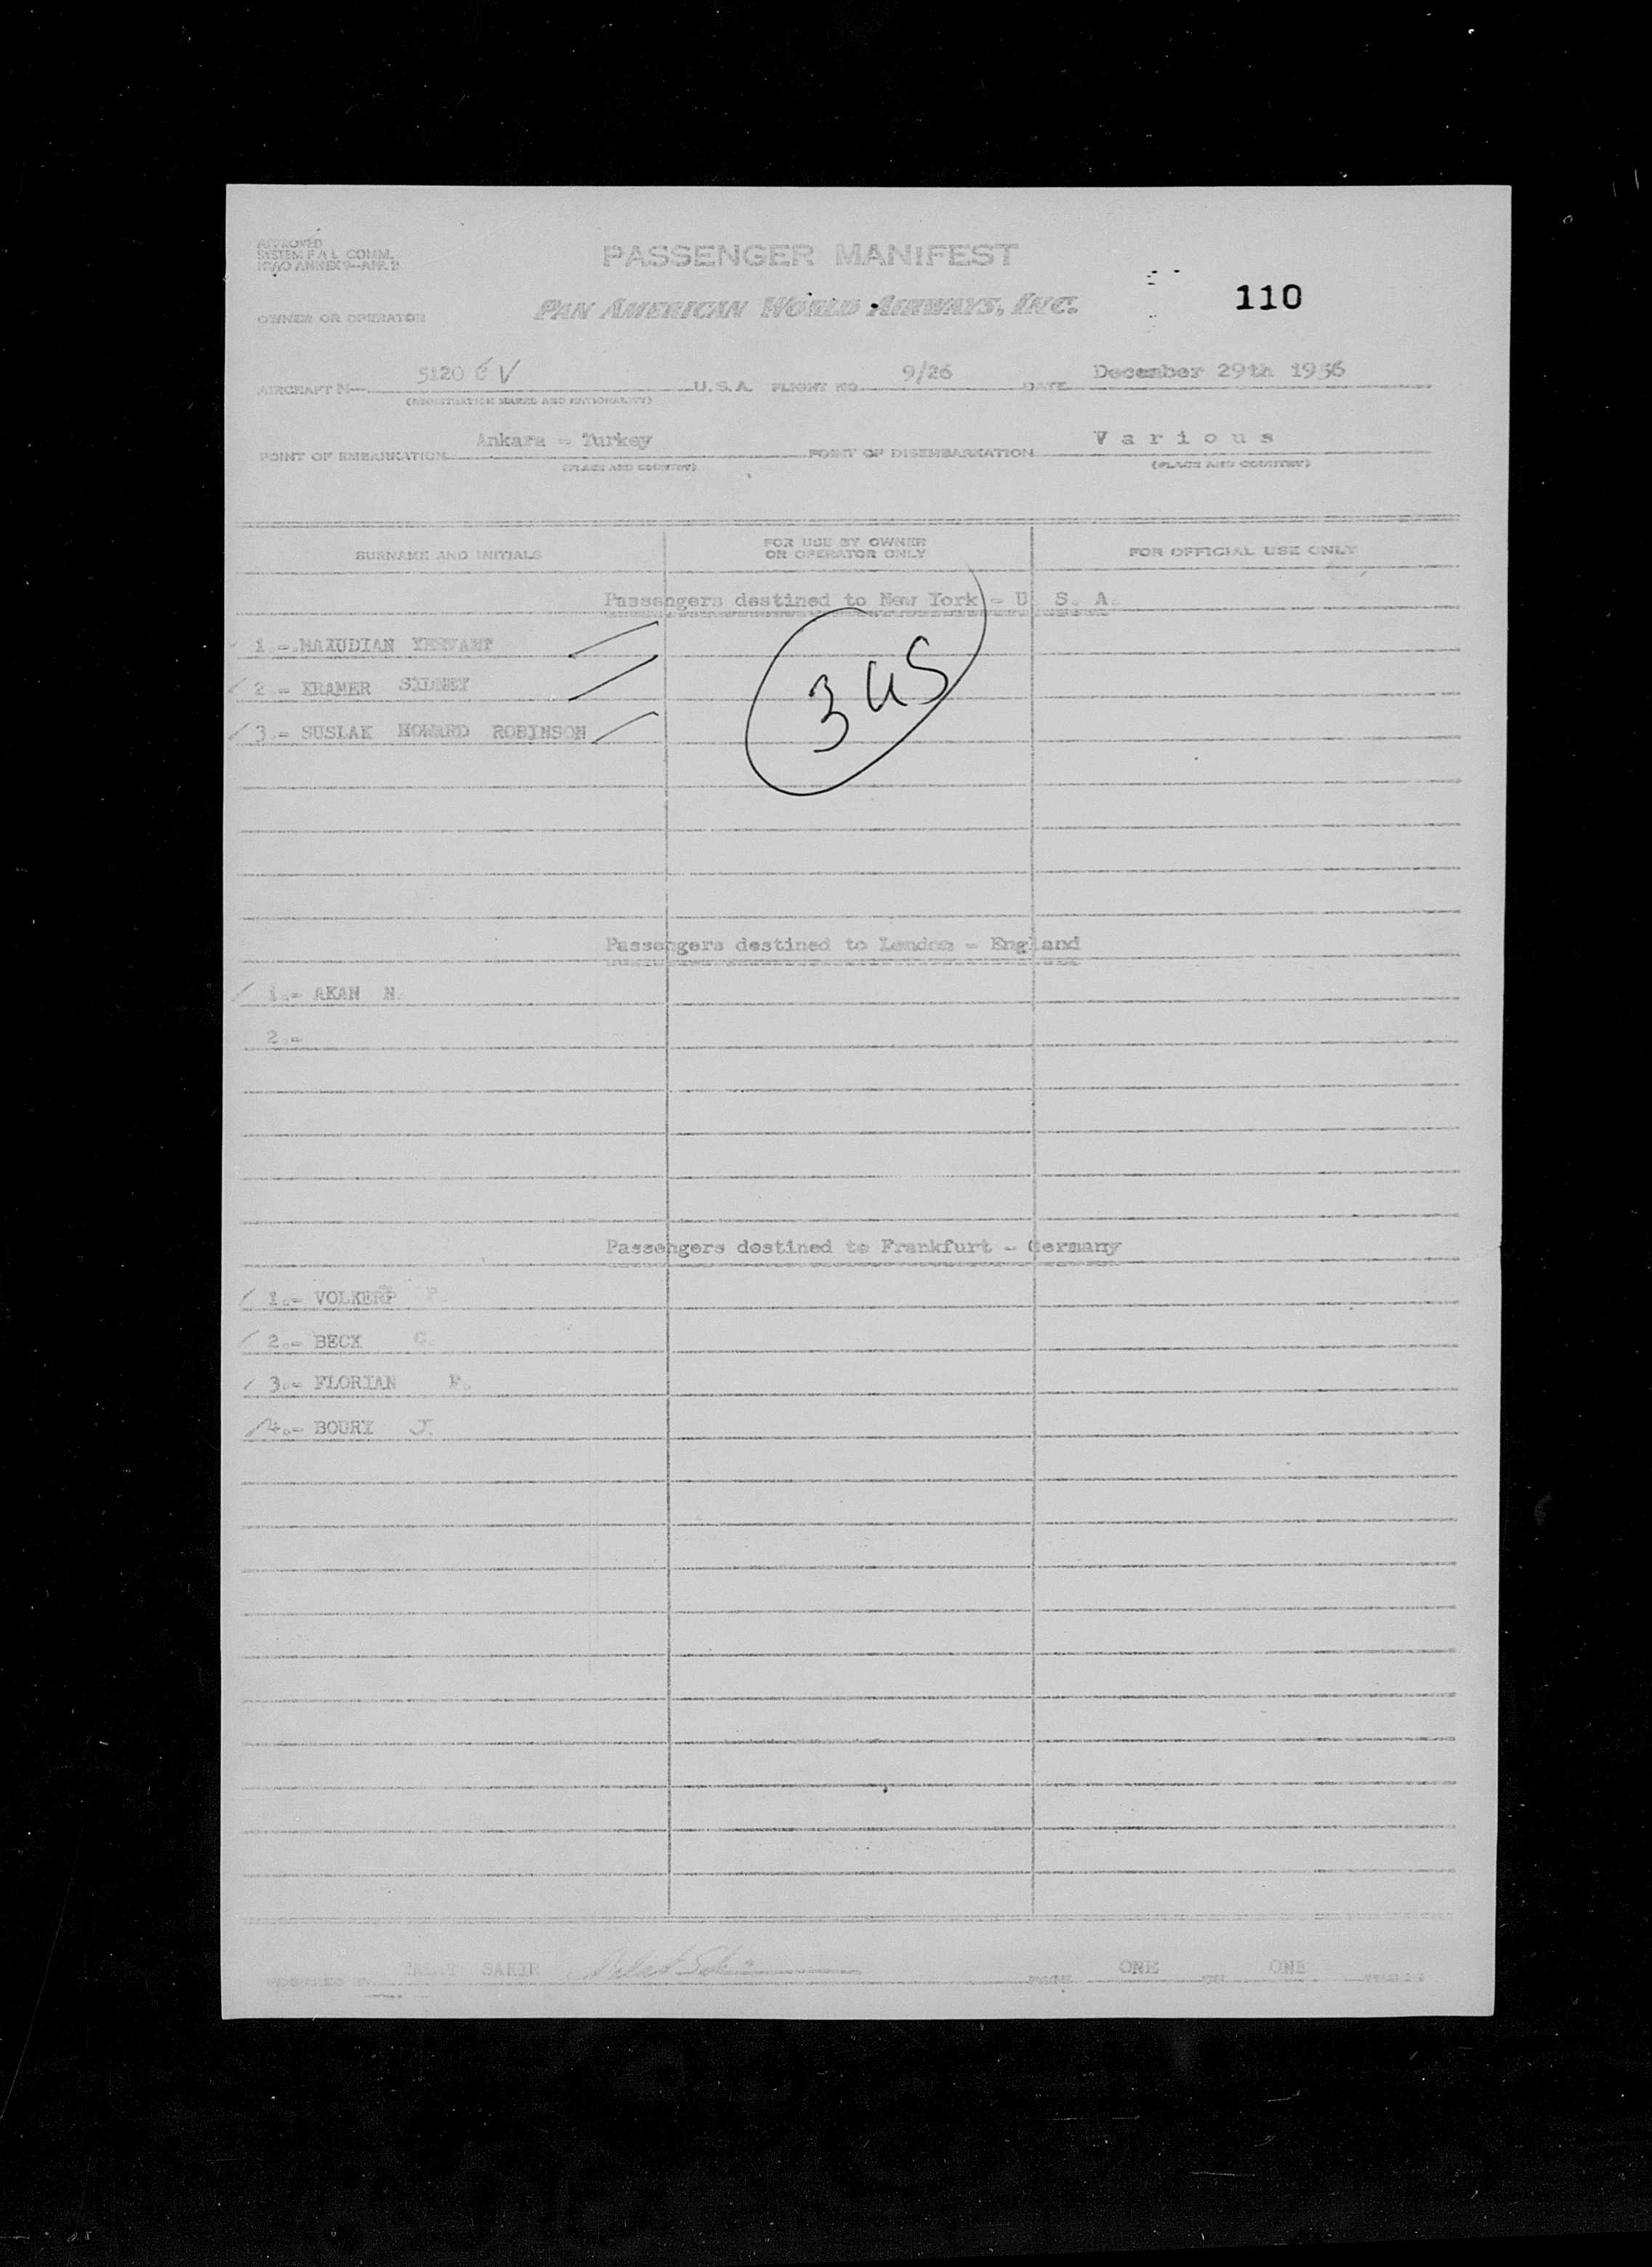 APPROVED
SYSTEM F A L COMM.
ICAO ANNEX 9—APP. 2
PASSENGER MANIFEST
110
OWNER OR OPERATOR PAN AMERICAN WORLD AIRWAYS, INC.
AIRCRAFT N— 5120 V U.S.A. FLIGHT NO. 9/26 DATE December 29th 1956
(REGISTRATION MARKS AND NATIONALITY)
POINT OF EMBARKATION Ankara - Turkey POINT OF DISEMBARKATION Various
(PLACE AND COUNTRY) (PLACE AND COUNTRY)
SURNAME AND INITIALS FOR USE BY OWNER OR OPERATOR ONLY FOR OFFICIAL USE ONLY
Passengers destined to New York - U. S. A.
1.- MAXUDIAN YERVANT
2.- KRAMER SIDNEY
3.- SUSLAK HOWARD ROBINSON
3 US
Passengers destined to London - England
1.- AKAN N.
2.-
Passengers destined to Frankfurt - Germany
1.- VOLKERP
2.- BECK C.
3.- FLORIAN F.
4.- BOURY J.
PREPARED BY SAKIR PAGE ONE OF ONE PAGES